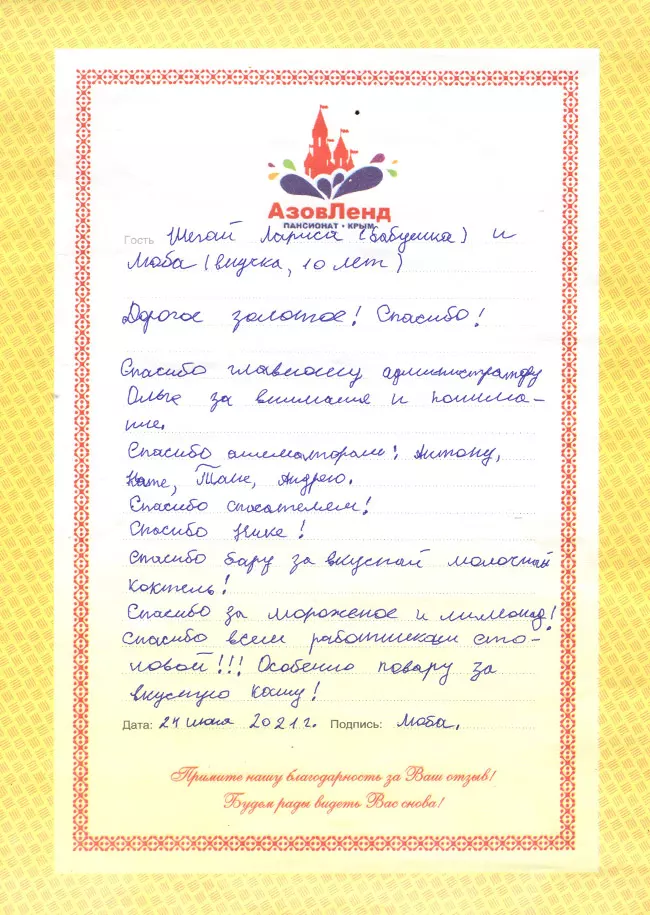 АзовЛенд
ПАНСИОНАТ • КРЫМ
Гость Шегай Лариса (бабушка) и
Люба (внучка, 10 лет)
Дорогое золотое! Спасибо!
Спасибо главному администратору
Ольге за внимания и понима-
ние.
Спасибо аниматорам: Антону,
Кате, Тане, Андрею.
Спасибо спасателем!
Спасибо Нике!
Спасибо бару за вкустай молочный
коктель!
Спасибо за мороженое и лимонад!
Спасибо всем работникам сто-
ловой!!! Особенно повару за
вкусную кашу!
Дата: 24 июня 2021 г. Подпись: Люба.
Примите нашу благодарность за Ваш отзыв!
Будем рады видеть Вас снова!